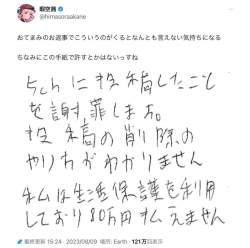 暇空茜
@himasoraakane
おてまみのお返事でこういうのがくるとなんとも言えない気持ちになる
ちなみにこの手紙で許すとかはないっすね
5chに投稿したこと
を謝罪します。
投稿の削除の
やり方がわかりません
私は生活保護を利用
しており80万円払えません
最終更新 15:24・2023/08/09 場所: Earth・121万回表示